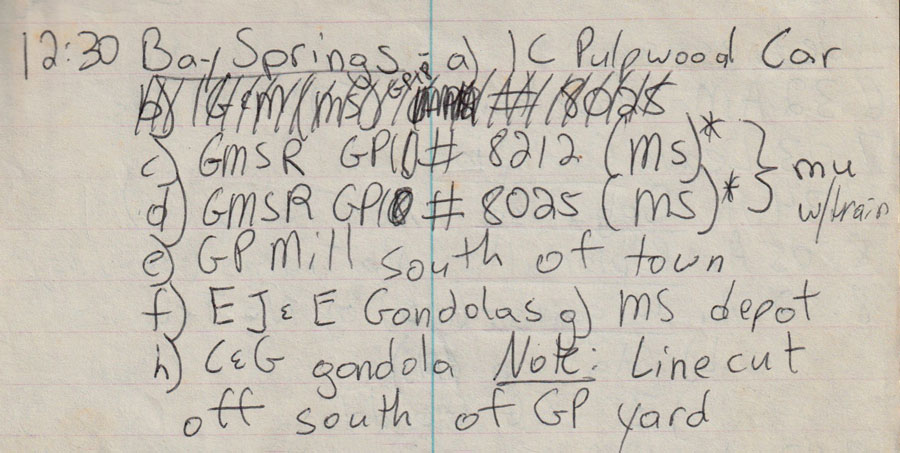 12:30 Bay Springs - a) IC Pulpwood Car
b) G&M (MS) GP10 # 8025
c) GMSR GP10 # 8212 (MS)* } mu
d) GMSR GP10 # 8025 (MS)* } w/train
e) GP Mill south of town
f) EJ&E Gondolas g) MS depot
h) C&G gondola Note: Line cut
off south of GP yard